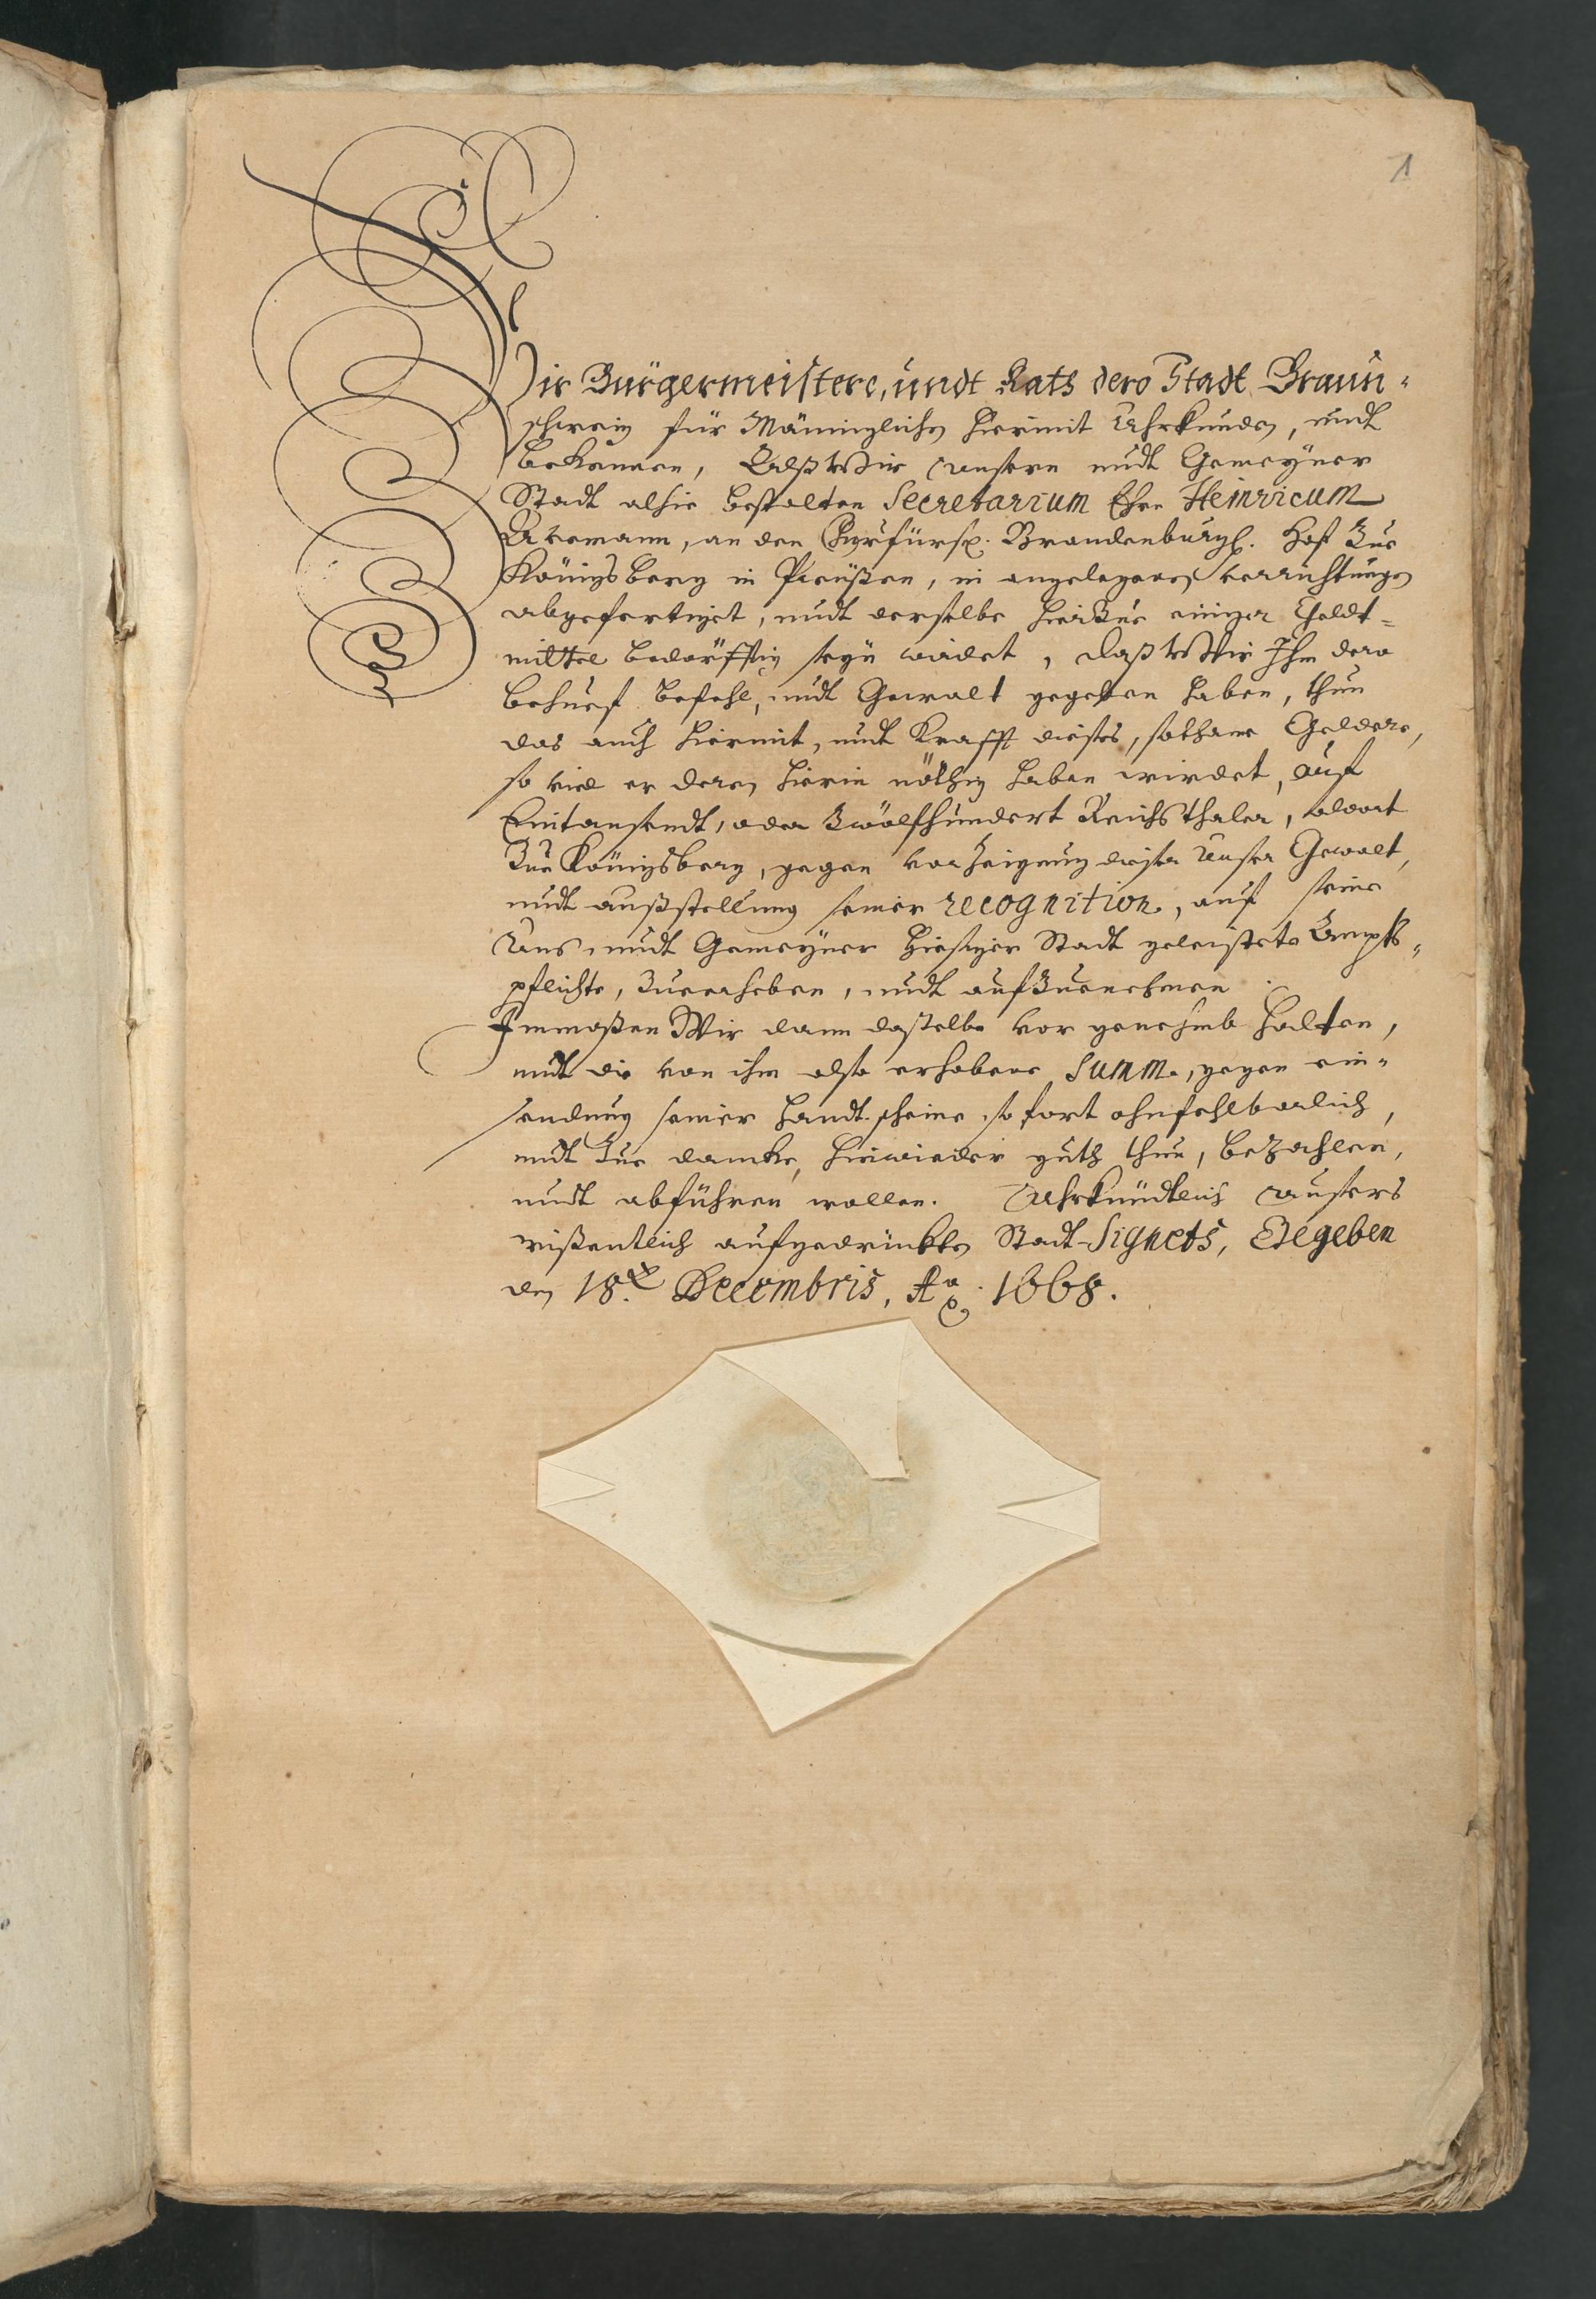 1
Wir Bürgermeistere, undt Rath dero Stadt Braun-
schweig für Männiglichen hiermit Uhrkunden, undt
bekennen, Alß Wir Unsern undt Gemeyner
Stadt alhie bestalten Secretarium Ehrn Heinricum
an den Churfürstl. Brandenburgl. Hoff Zue
Königsberg in Preüßen, in angelegenen verrichtungen
abgefertiget, undt derselbe hierZue einiger Geldt-
mittel bedörfftig seyn würdet, Daß Wir Ihm dero
behuef befehl, undt Gewalt gegeben haben, thun
das auch hiermit, undt Krafft dieses, sothane Geldere,
so viel er deren hierin nöthig haben wirdet, auf
Eintausendt, oder Zwölfhundert Reichsthaler, aldort
Zue Königsberg, gegen vorZeigung dieser Unser Gewalt,
undt außstellung seiner recognition, auf seine
Uns undt Gemeyner hiesiger Stadt geleistete Ampts-
pflichte, Zuerheben, undt aufZuenehmen.
Inmaßen Wir dann dasselbe vor genehmb halten,
undt die von ihm also erhobene Summe, gegen ein-
sendung seiner handtscheine so fort ohnfehlbarlich,
undt Zue dancke, hinwieder guth thun, beZahlen,
undt abführen wollen. Uhrkundtlich unsers
wißentlich aufgedruckten Stadt-Signets, Gegeben
den 18. Decembris, Ao. 1668.